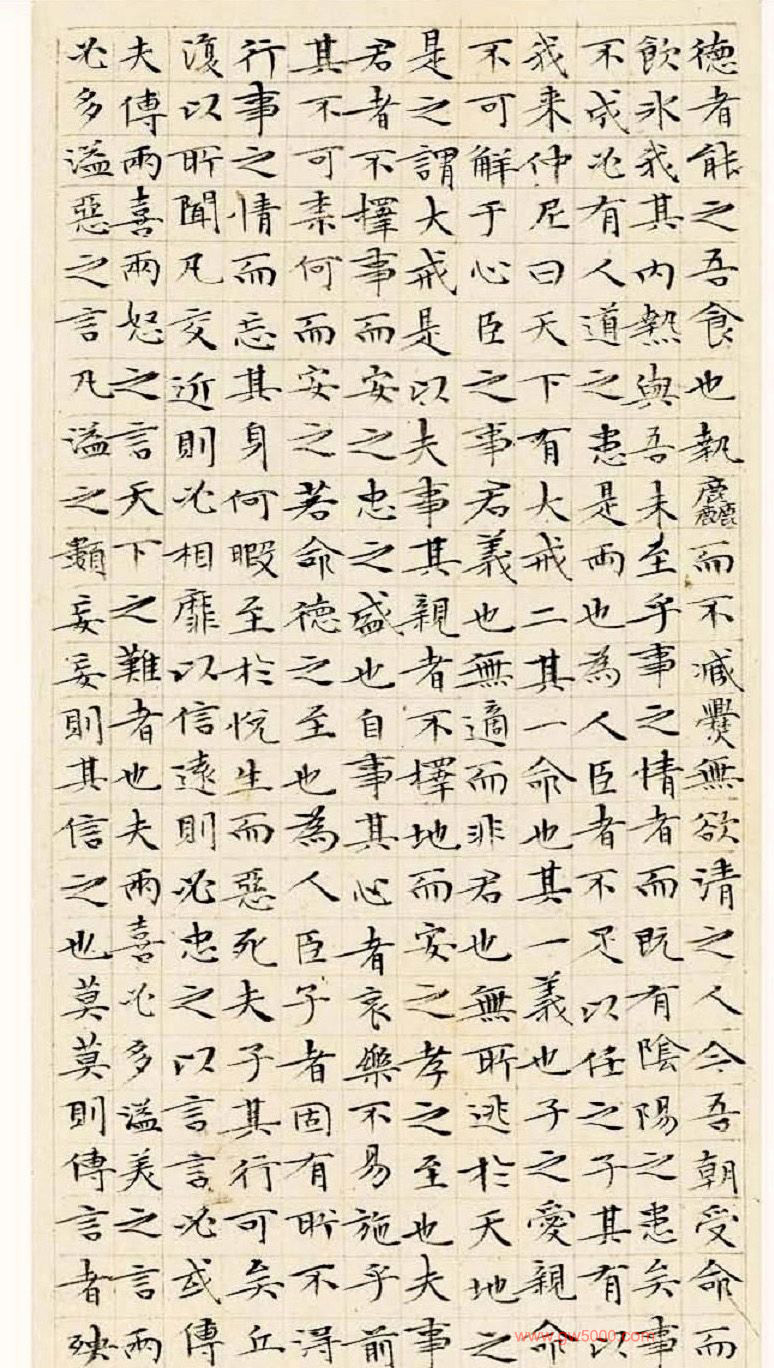 德者能之吾食也執麤而不臧爨無欲清之人今吾朝受命而
飲氷我其內熱與吾未至乎事之情者而既有陰陽之患矣事
不成必有人道之患是兩也為人臣者不足以任之子其有以
我来仲尼曰天下有大戒二其一命也其一義也子之愛親命
不可解于心臣之事君義也無適而非君也無所逃於天地之
是之謂大戒是以夫事其親者不擇地而安之孝之至也夫事
君者不擇事而安之忠之盛也自事其心者哀樂不易施乎前
其不可柰何而安之若命德之至也為人臣子者固有所不得
行事之情而忘其身何暇至於悅生而惡死夫子其行可矣丘
復以所聞凡交近則必相靡以信遠則必忠之以言言必或傳
夫傳兩喜兩怒之言天下之難者也夫兩喜必多溢美之言兩
必多溢惡之言凡溢之類妄妄則其信之也莫莫則傳言者殃